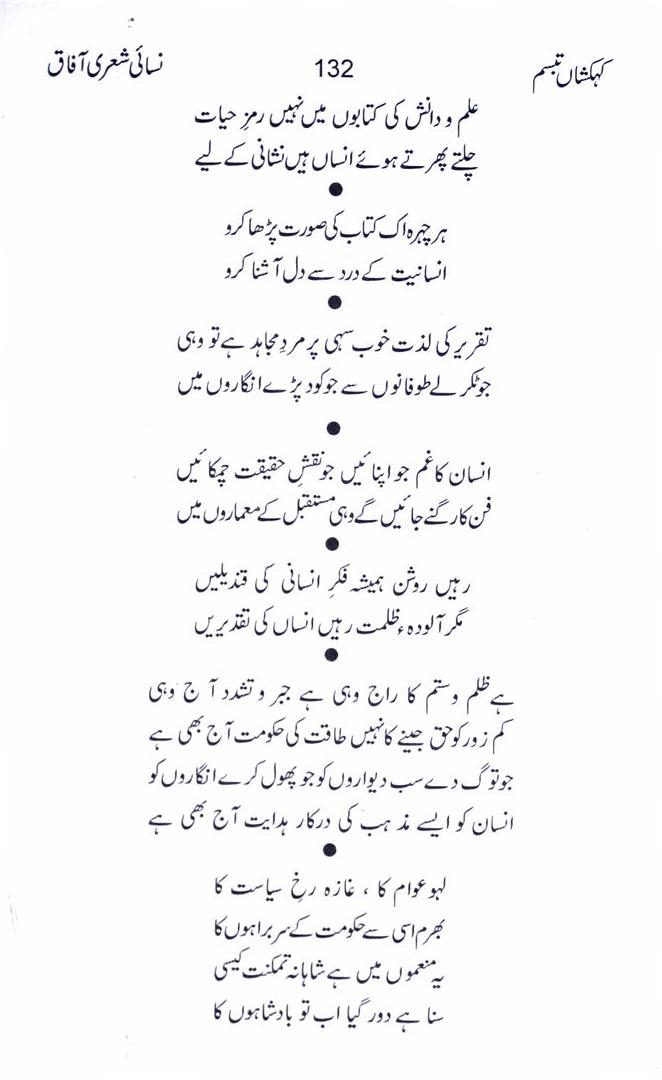 کہکشاں تبسم 132 نسائی شعری آفاق
علم و دانش کی کتابوں میں نہیں رمزِ حیات
چلتے پھرتے ہوئے انساں ہیں نشانی کے لیے
●
ہر چہرہ اک کتاب کی صورت پڑھا کرو
انسانیت کے درد سے دل آشنا کرو
●
تقریر کی لذت خوب سہی پر مردِ مجاہد ہے تو وہی
جو ٹکر لے طوفانوں سے جو کود پڑے انگاروں میں
●
انسان کا غم جو اپنائیں جو نقشِ حقیقت چمکائیں
فن کار گنے جائیں گے وہی مستقبل کے معماروں میں
●
رہیں روشن ہمیشہ فکرِ انسانی کی قندیلیں
مگر آلودہء ظلمت رہیں انساں کی تقدیریں
●
ہے ظلم و ستم کا راج وہی ہے جبر و تشدد آج وہی
کم زور کو حق جینے کا نہیں طاقت کی حکومت آج بھی ہے
جو توگ دے سب دیواروں کو جو پھول کرے انگاروں کو
انسان کو ایسے مذہب کی درکار ہدایت آج بھی ہے
●
لہو عوام کا ، غازہ رخِ سیاست کا
بھرم اسی سے حکومت کے سربراہوں کا
یہ منعموں میں ہے شاہانہ تمکنت کیسی
سنا ہے دور گیا اب تو بادشاہوں کا